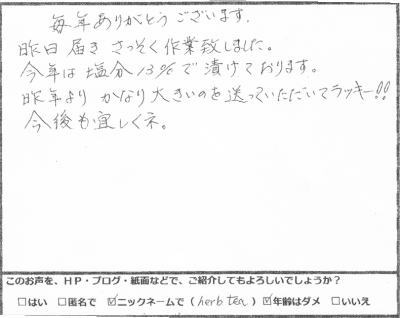 毎年ありがとうございます.
昨日届きさっそく作業致しました。
今年は塩分13%で漬けております。
昨年よりかなり大きいのを送っていただいてラッキー!!
今後も宜しくネ。
このお声を、HP・ブログ・紙面などで、ご紹介してもよろしいでしょうか?
□はい □匿名で ☑ニックネームで(herb tea) ☑年齢はダメ □いいえ